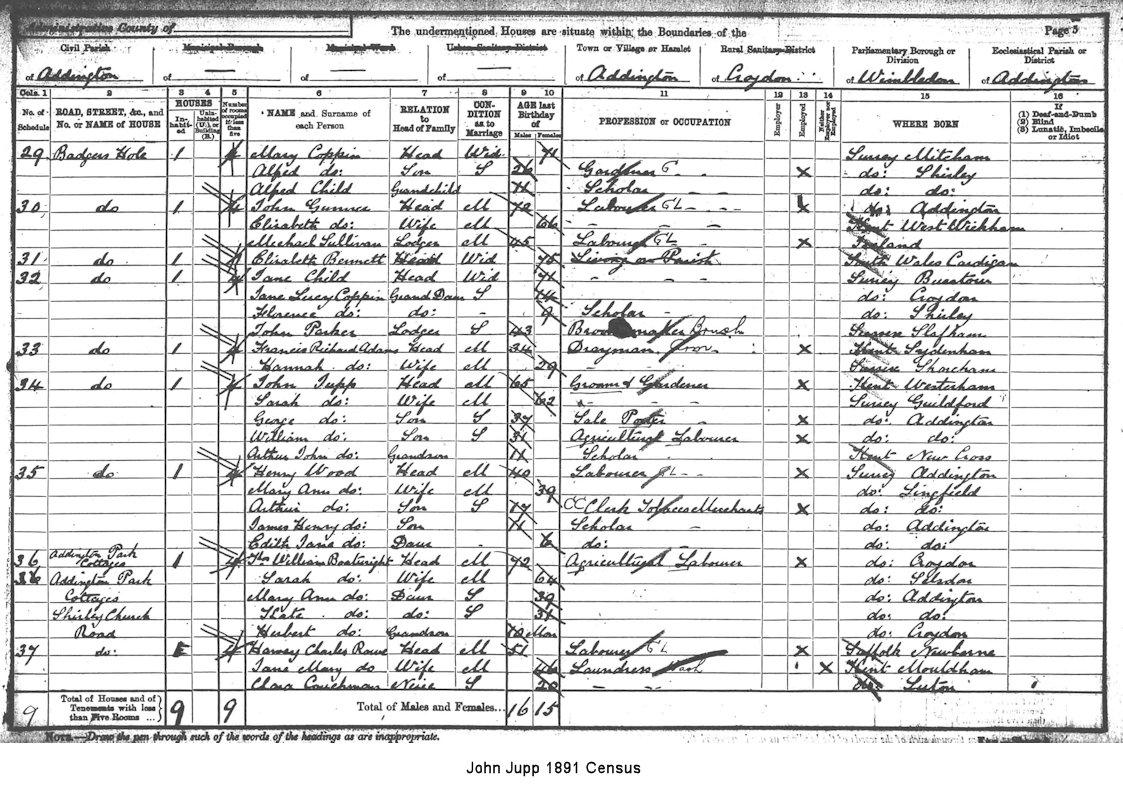 Administrative County of The undermentioned Houses are situate within the Boundaries of the Page 5
Civil Parish Municipal Borough Municipal Ward Urban Sanitary District Town or Village or Hamlet Rural Sanitary District Parliamentary Borough or Division Ecclesiastical Parish or District
of Addington of — of — of — of Addington of Croydon of Wimbledon of Addington
Cols. 1 2 3 4 5 6 7 8 9 10 11 12 13 14 15 16
No. of Schedule ROAD, STREET, &c., and No. or NAME of HOUSE HOUSES Inhabited Uninhabited (U.), or Building (B.) Number of rooms occupied if less than five NAME and Surname of each Person RELATION to Head of Family CONDITION as to Marriage AGE last Birthday of Males Females PROFESSION or OCCUPATION Employer Employed Neither Employer nor Employed WHERE BORN If (1) Deaf-and-Dumb (2) Blind (3) Lunatic, Imbecile or Idiot
29 Badgers Hole 1 4 Mary Coppin Head Wid 71 Surrey Mitcham
Alfred do: Son S 26 Gardener G X do: Shirley
Alfred Child Grandchild 11 Scholar do: do:
30 do 1 4 John Gunner Head M 72 Labourer GL X do: Addington
Elizabeth do: Wife M 66 Kent West Wickham
Michael Sullivan Lodger M 45 Labourer GL X Ireland
31 do 1 Elizabeth Bennett Head Wid 75 Living on Parish South Wales Cardigan
32 do 1 4 Jane Child Head Wid 71 Surrey
Jane Lucy Coppin Grand Daur S 14 do: Croydon
Florence do: do: - 9 Scholar do: Shirley
John Parker Lodger S 43 Broom maker Brush Sussex
33 do 1 4 Francis Richard Adams Head M 34 Drayman X Kent Sydenham
Hannah do: Wife M 29 Sussex Shoreham
34 do 1 4 John Jupp Head M 65 Groom & Gardener X Kent Westerham
Sarah do: Wife M 62 Surrey Guildford
George do: Son S 37 X do: Addington
William do: Son S 31 Agricultural Labourer X do: do:
Arthur John do: Grandson 11 Scholar Kent New Cross
35 do 1 4 Henry Wood Head M 40 Labourer GL X Surrey Addington
Mary Ann do: Wife M 39 do: Lingfield
Arthur do: Son S 17 CC Clerk Merchants X do: do:
James Henry do: Son 11 Scholar do: Addington
Edith Jane do: Daur 6 do: do: do:
36 Addington Park Cottages 1 4 William Boatwright Head M 72 Agricultural Labourer X do: Croydon
36 Addington Park Sarah do: Wife M 64 do: Selsdon
Cottages Mary Ann do: Daur S 39 do: Addington
Shirley Church Kate do: do: S 31 do: do:
Road Herbert do: Grandson 10 Mon do: Croydon
37 do: 4 Harvey Charles Rowe Head M 51 Labourer GL X Suffolk Newborne
Jane Mary do Wife M 46 Laundress Wash X Kent
Clara Couchman Neice S 20 do: Luton
9 Total of Houses and of Tenements with less than Five Rooms ... 9 9 Total of Males and Females... 16 15
NOTE.—Draw the pen through such of the words of the headings as are inappropriate.
John Jupp 1891 Census